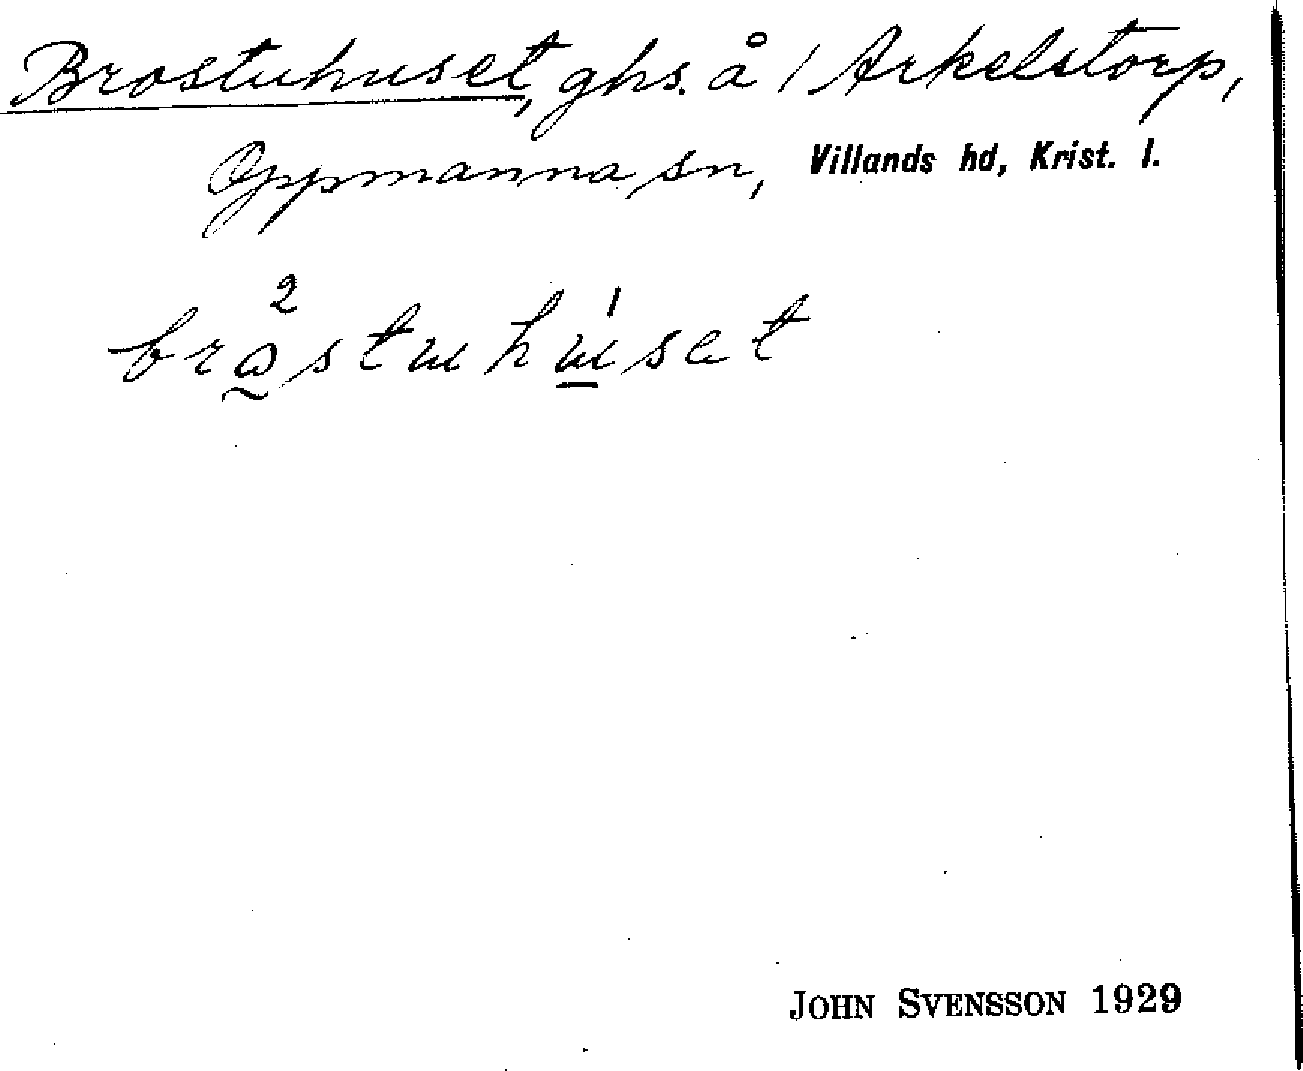 Brostuhuset, ghs. å 1 Arkelstorp,
Oppmanna sn, Villands hd, Krist. l.
JOHN SVENSSON 1929